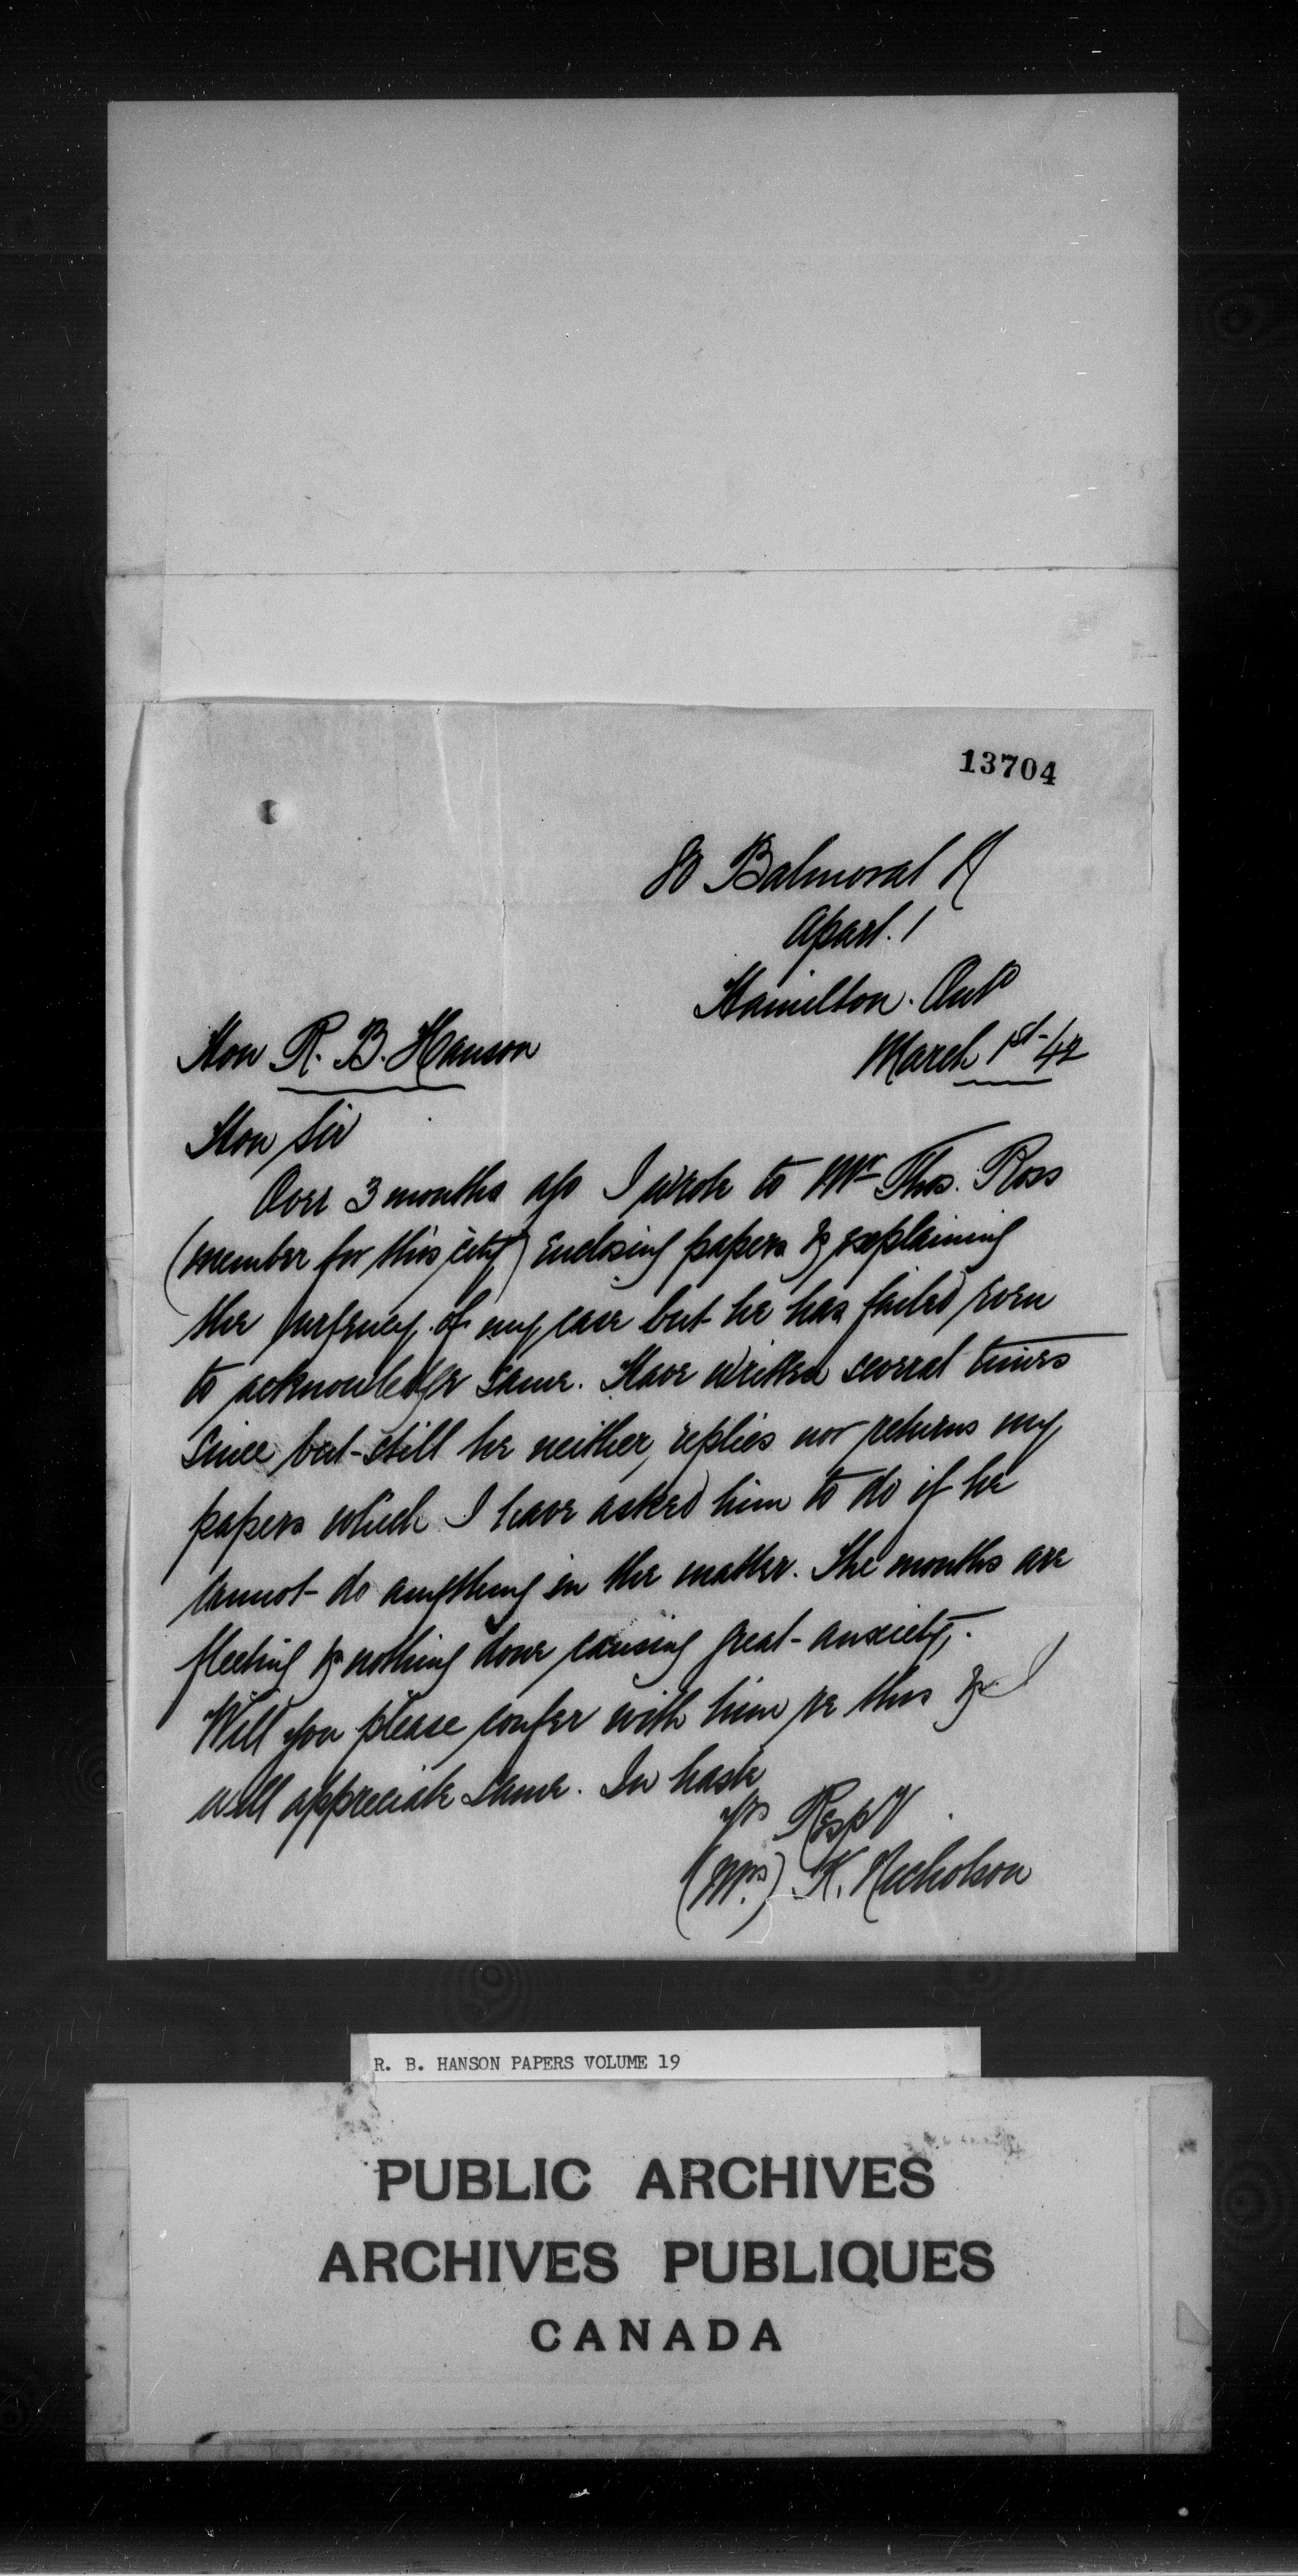 13704
80 Balmoral
Apart. 1
Hamilton. Ont
March 1st - 42
Hon R. B. Hanson
Hon Sir
Over 3 months ago I wrote to Mr Thos. Ross
(member for this city) enclosing papers & explaining
the urgency of my case but he has failed even
to acknowledge same. Have written several times
since but still he neither replies nor returns my
papers which I have asked him to do if he
cannot do anything in the matter. The months are
fleeting & nothing done causing great anxiety.
Will you please confer with him re this & I
will appreciate same. In haste
Yrs Respy
(Mrs.) K. Nicholson
R. B. HANSON PAPERS VOLUME 19
PUBLIC ARCHIVES
ARCHIVES PUBLIQUES
CANADA